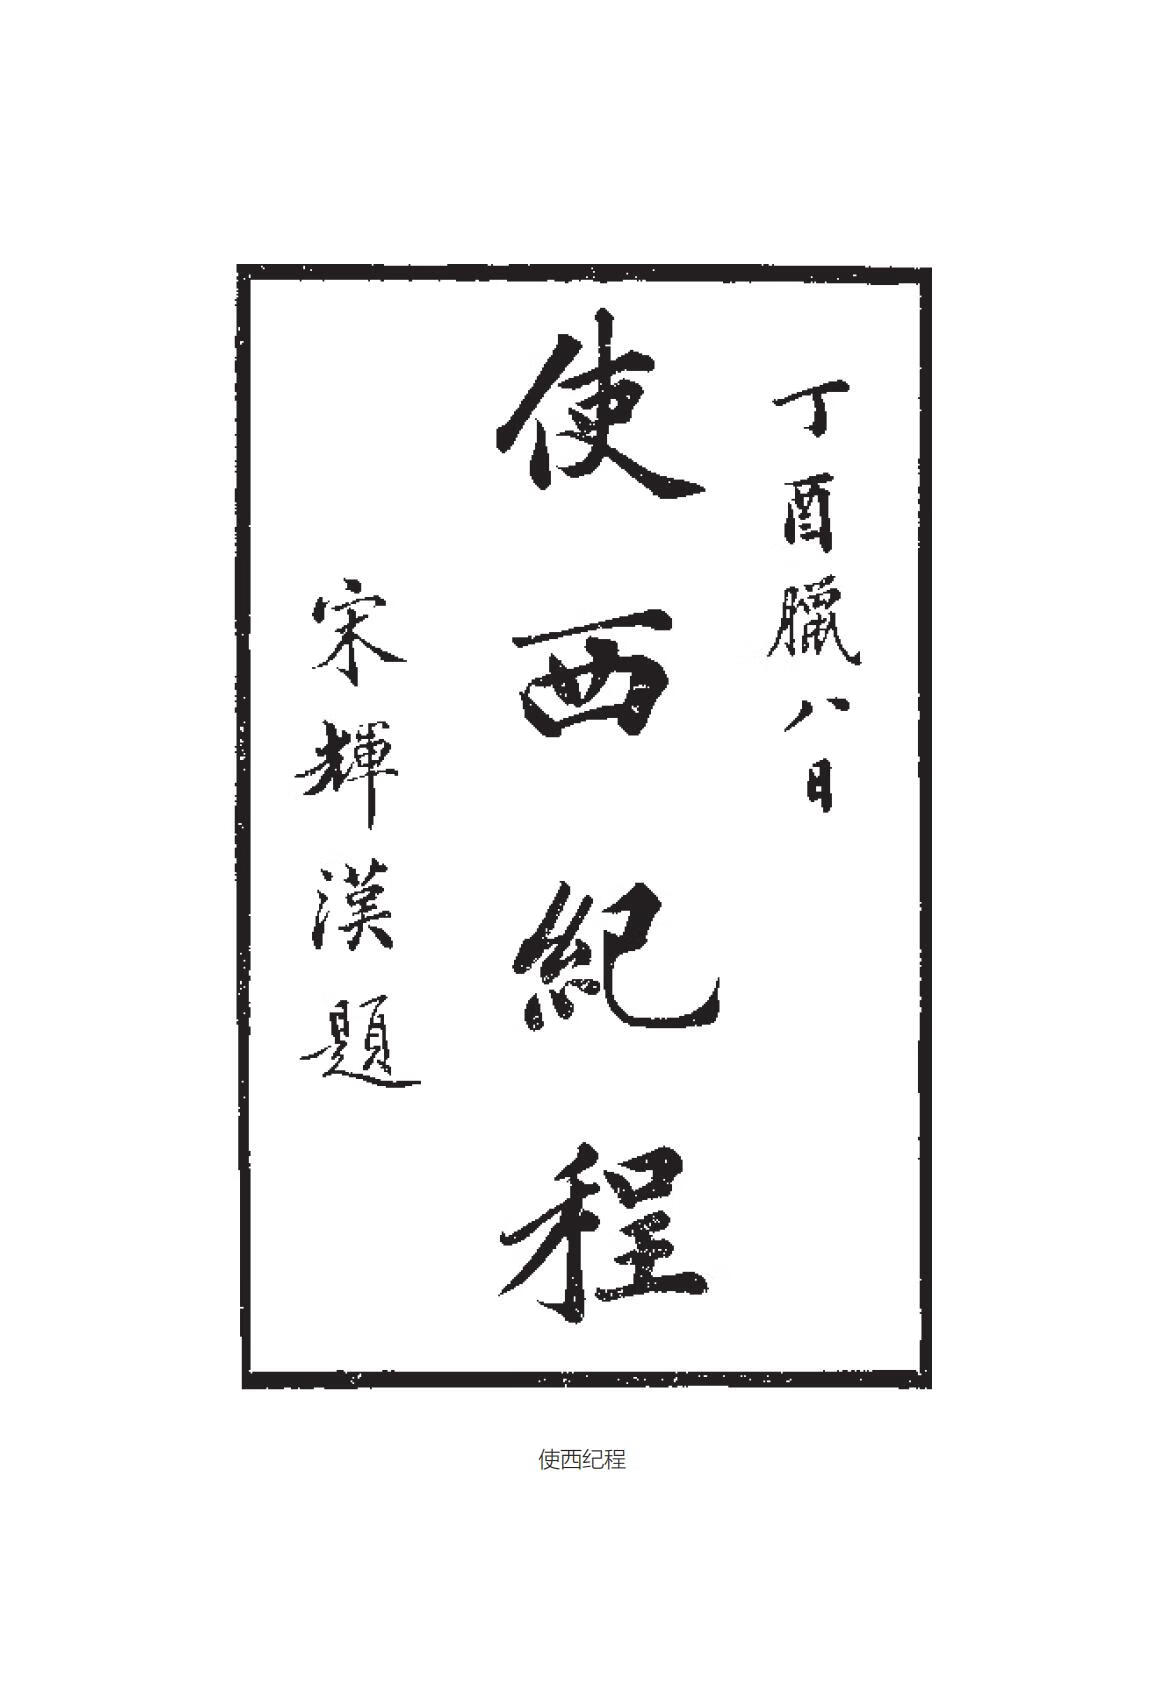 丁酉臘八日
使西紀程
宋輝漢題
使西纪程